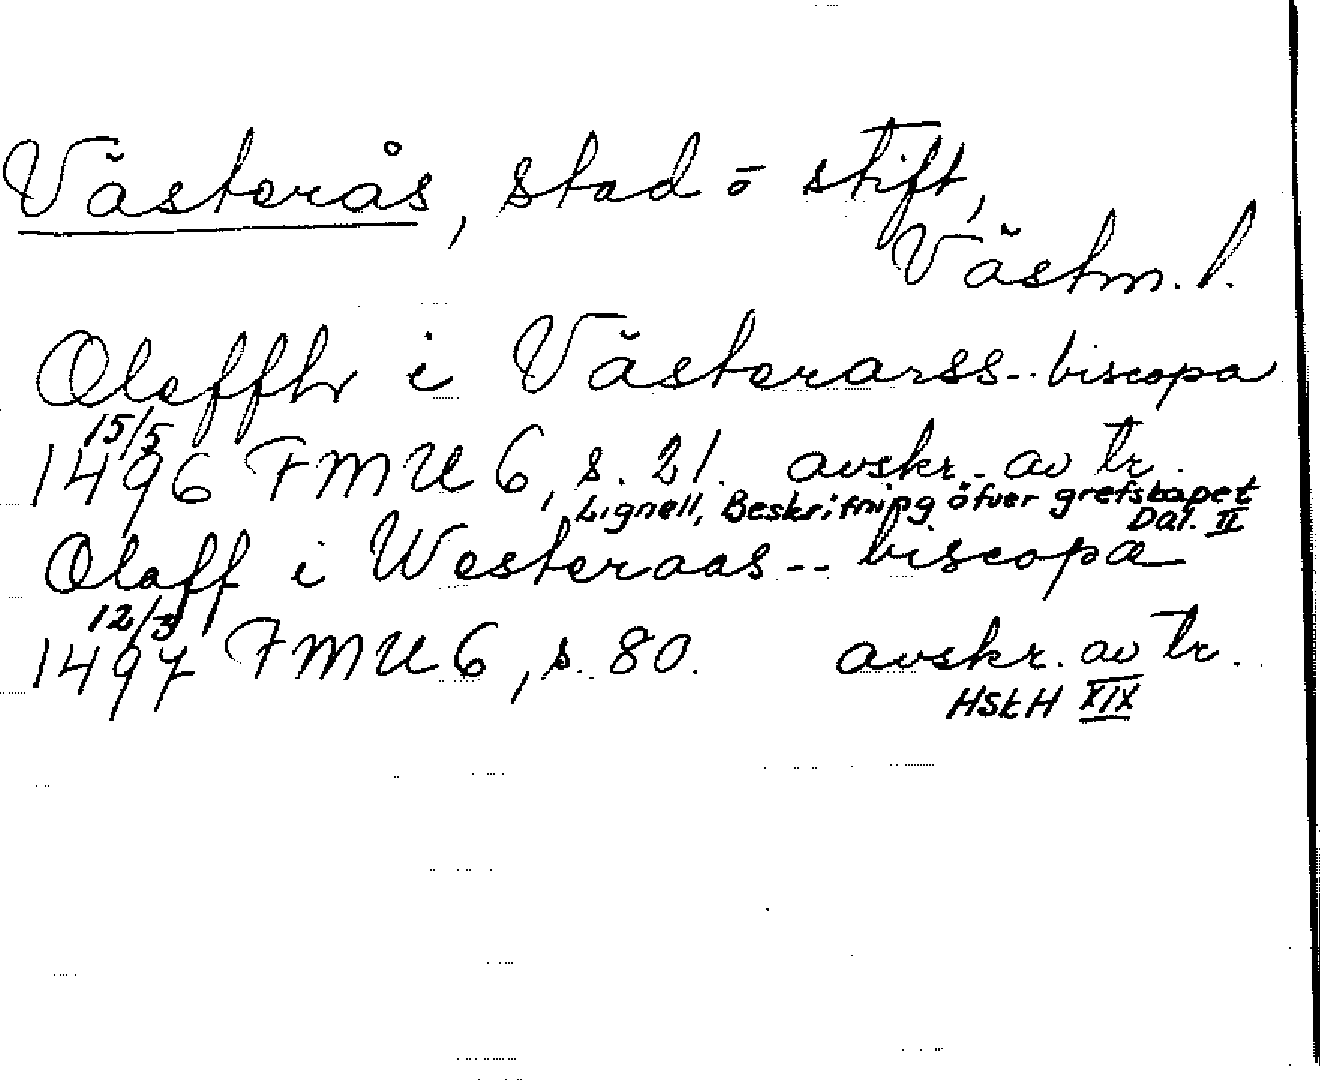 Västerås, stad o stift,
Västm. l.
Oleffhr i Västerarss-- biscopa
15/5
1496 FMU 6, s. 21. avskr. av tr.
Lignell, Beskrifning öfver grefskapet
Dal. II
Olaff i Westeraas -- biscopa
12/3
1497 FMU 6, s. 80. avskr. av tr.
HSkH XIX